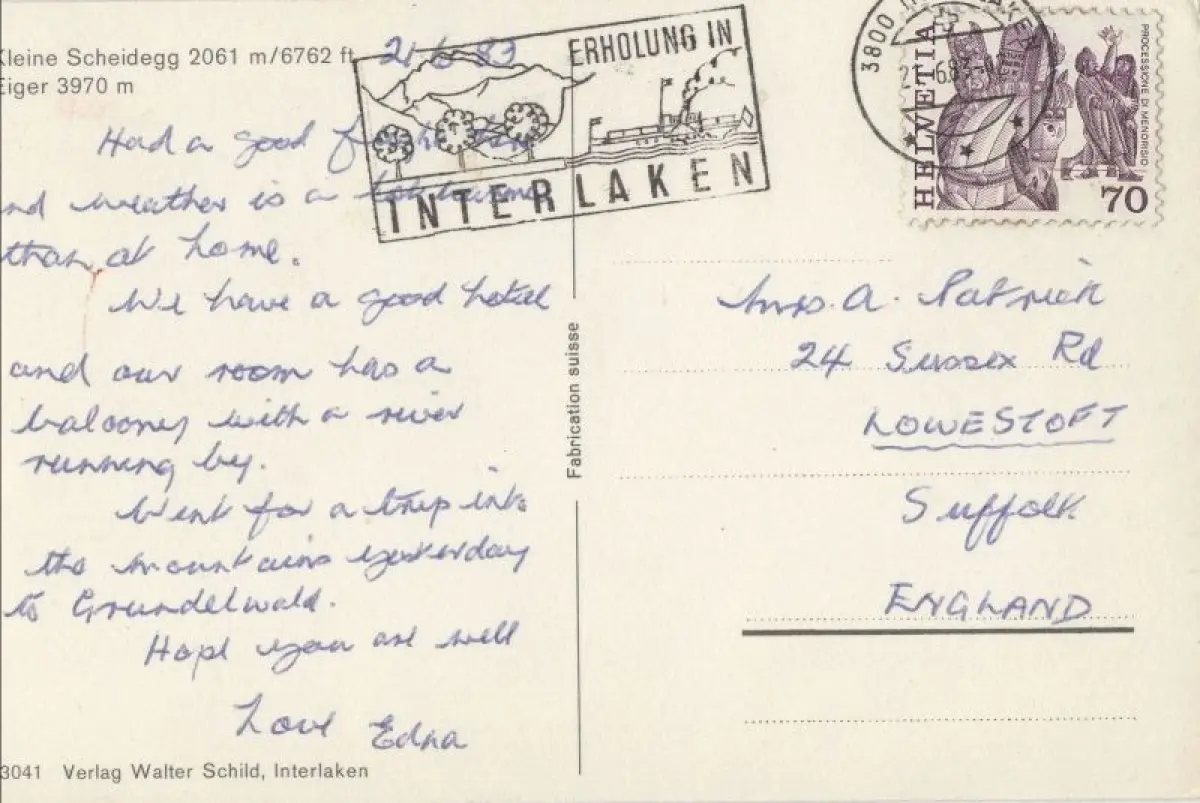 Kleine Scheidegg 2061 m/6762 ft
Eiger 3970 m
21/6 83
ERHOLUNG IN
INTERLAKEN
3800
HELVETIA
PROCESSIONE DI MENDRISIO
70
Had a good
nd weather is a
than at home.
We have a good hotel
and our room has a
balcony with a river
running by.
Went for a trip into
the mountains yesterday
to Grundelwald.
Hope you are well
Love Edna
3041 Verlag Walter Schild, Interlaken
Fabrication suisse
Mrs. A. Patrick
24 Sussex Rd
LOWESTOFT
Suffolk
ENGLAND